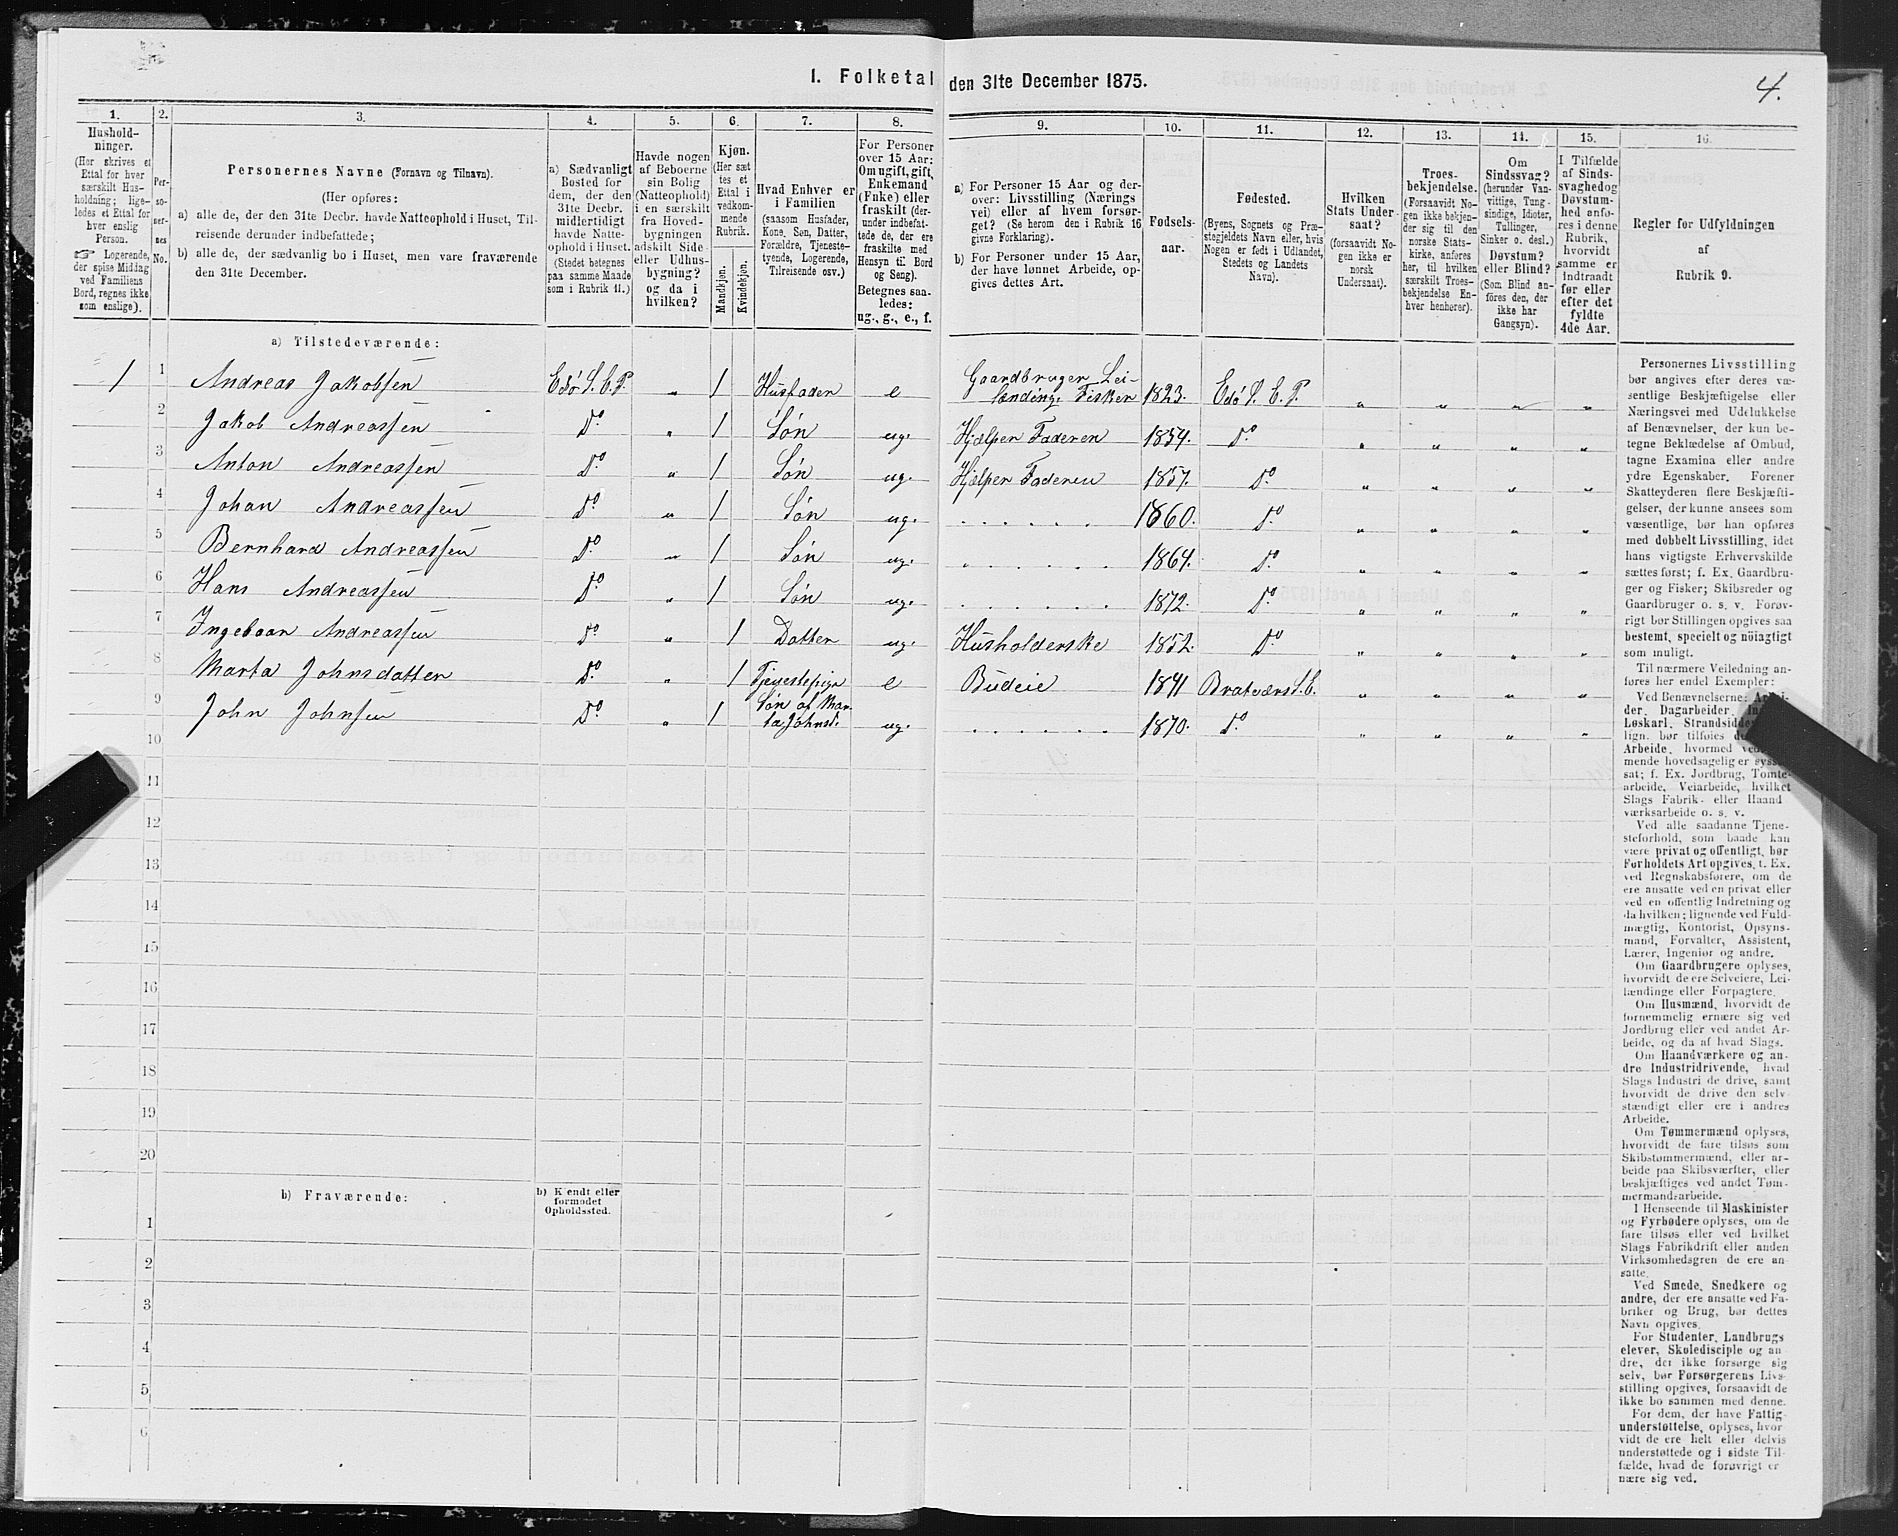 1. Folketal den 31te December 1875.
4.
1.
Hushold-
ninger.
(Her skrives et
Ettal for hver
særskilt Hus-
holdning; lige-
ledes et Ettal for
hver enslig
Person.
☞ Logerende,
der spise Middag
ved Familiens
Bord, regnes ikke
som enslige).
2.
Per-
so-
ner-
nes
No.
3.
Personernes Navne (Fornavn og Tilnavn).
(Her opføres:
a) alle de, der den 31te Decbr. havde Natteophold i Huset, Til-
reisende derunder indbefattede;
b) alle de, der sædvanlig bo i Huset, men vare fraværende
den 31te December.
4.
a) Sædvanligt
Bosted for
dem, der den
31te Decbr.
midlertidigt
havde Natte-
ophold i Huset.
(Stedet betegnes
paa samme Maade
som i Rubrik 11.)
5.
Havde nogen
af Beboerne
sin Bolig
(Natteophold)
i en særskilt
fra Hoved-
bygningen
adskilt Side-
eller Udhus-
bygning?
og da i
hvilken?
6.
Kjøn.
(Her sæt
tes et
Ettal i
vedkom-
mende
Rubrik.
Mandkjøn.
Kvindekjøn.
7.
Hvad Enhver er
i Familien
(saasom Husfader,
Kone, Søn, Datter,
Forældre, Tjeneste-
tyende, Logerende,
Tilreisende osv.)
8.
For Personer
over 15 Aar:
Om ugift, gift,
Enkemand
(Enke) eller
fraskilt (der-
under indbefat-
tede de, der ere
fraskilte med
Hensyn til Bord
og Seng).
Betegnes saa-
ledes:
ug., g., e., f.
9.
a) For Personer 15 Aar og der-
over: Livsstilling (Nærings
vei) eller af hvem forsør-
get? (Se herom den i Rubrik 16
givne Forklaring).
b) For Personer under 15 Aar,
der have lønnet Arbeide, op-
gives dettes Art.
10.
Fødsels-
aar.
11.
Fødested.
(Byens, Sognets og Præ-
stegjeldets Navn eller, hvis
Nogen er født i Udlandet,
Stedets og Landets
Navn).
12.
Hvilken
Stats Under-
saat?
(forsaavidt No-
gen ikke er
norsk
Undersaat).
13.
Troes-
bekjendelse.
(Forsaavidt No-
gen ikke bekjen-
der sig til den
norske Stats-
kirke, anføres
her, til hvilken
særskilt Troes-
bekjendelse En-
hver henhører).
14.
Om
Sindssvag?
(herunder Van-
vittige, Tung-
sindige, Idioter,
Tullinger,
Sinker o. desl.)
Døvstum?
eller Blind?
(Som Blind an-
føres den, der
ikke har
Gangsyn).
15.
I Tilfælde
af Sinds-
svaghed og
Døvstum-
hed anfø-
res i denne
Rubrik,
hvorvidt
samme er
indtraadt
før eller
efter det
fyldte
4de Aar.
16.
Regler for Udfyldningen
af
Rubrik 9.
a) Tilstedeværende:
1 1 Andreas Jakobsen Edø S. & P. „ 1 Husfader e Gaardbruger Lei-
lænding. Fisker 1823. Edø S. & P. „ „ „ „
2 Jakob Andreassen Do „ 1 Søn ug. Hjælper Faderen 1854. Do „ „ „ „
3 Anton Andreassen Do „ 1 Søn ug. Hjælper Faderen 1857. Do „ „ „ „
4 Johan Andreassen Do „ 1 Søn ug. . . . . . . 1860. Do „ „ „ „
5 Bernhard Andreassen Do „ 1 Søn ug. . . . . . . 1864. Do „ „ „ „
6 Hans Andreassen Do „ 1 Søn ug. . . . . . . 1872. Do „ „ „ „
7 Ingeboar Andreassen Do „ 1 Datter ug. Husholderske 1852. Do „ „ „ „
8 Marta Johnsdatter Do „ 1 Tjenestepige e Budeie 1841 Bratvær S. &. „ „ „ „
9 John Johnsen Do „ 1 Søn af Mar-
ta Johnsd. ug. . . . . . . 1870. Do „ „ „ „
10
11
12
13
14
15
16
17
18
19
20
b) Fraværende:
b) Kjendt eller
formodet
Opholdssted.
1
2
3
4
5
6
Personernes Livsstilling
bør angives efter deres væ-
sentlige Beskjæftigelse eller
Næringsvei med Udelukkelse
af Benævnelser, der kun be-
tegne Beklædelse af Ombud,
tagne Examina eller andre
ydre Egenskaber. Forener
Skatteyderen flere Beskjæfti-
gelser, der kunne ansees som
væsentlige, bør han opføres
med dobbelt Livsstilling, idet
hans vigtigste Erhvervskilde
sættes først; f. Ex. Gaardbru-
ger og Fisker; Skibsreder og
Gaardbruger o. s. v. Forøv-
rigt bør Stillingen opgives saa
bestemt, specielt og nöiagtigt
som muligt.
Til nærmere Veiledning an-
føres her endel Exempler:
Ved Benævnelserne: Arbei-
der, Dagarbeider,
Løskarl, Strandsidder
lign. bør tilføies
Arbeide, hvormed
mende hovedsagelig er
sat; f. Ex. Jordbrug, Tomte-
arbeide, Veiarbeide, hvilket
Slags Fabrik- eller Haand
værksarbeide o. s. v.
Ved alle saadanne Tjene-
steforhold, som baade kan
være privat og offentligt, bør
Forholdets Art opgives, t. Ex.
ved Regnskabsførere, om de
ere ansatte ved en privat eller
ved en offentlig Indretning og
da hvilken; lignende ved Fuld-
mægtig, Kontorist, Opsyns-
mand, Forvalter, Assistent,
Lærer, Ingeniør og andre.
Om Gaardbrugere oplyses,
hvorvidt de ere Selveiere, Lei-
lændinge eller Forpagtere.
Om Husmænd, hvorvidt de
fornemmelig ernære sig ved
Jordbrug eller ved andet Ar-
beide, og da af hvad Slags.
Om Haandværkere og an-
dre Industridrivende, hvad
Slags Industri de drive, samt
hvorvidt de drive den selv-
stændigt eller ere i andres
Arbeide.
Om Tømmermænd oplyses,
hvorvidt de fare tilsøs som
Skibstømmermænd, eller ar-
beide paa Skibsværfter, eller
beskjæftiges ved andet Tøm-
mermandsarbeide.
I Henseende til Maskinister
og Fyrbødere oplyses, om de
fare tilsøs eller ved hvilket
Slags Fabrikdrift eller anden
Virksomhedsgren de ere an-
satte.
Ved Smede, Snedkere og
andre, der ere ansatte ved Fa-
briker og Brug, bør dettes
Navn opgives.
For Studenter, Landbrugs
elever, Skoledisciple og an
dre, der ikke forsørge sig
selv, bør Forsørgerens Livs-
stilling opgives, forsaavidt de
ikke bo sammen med denne.
For dem, der have Fattig-
understøttelse, oplyses, hvor
vidt de ere helt eller delvis
understøttede og i sidste Til-
fælde, hvad de forøvrigt er
nære sig ved.